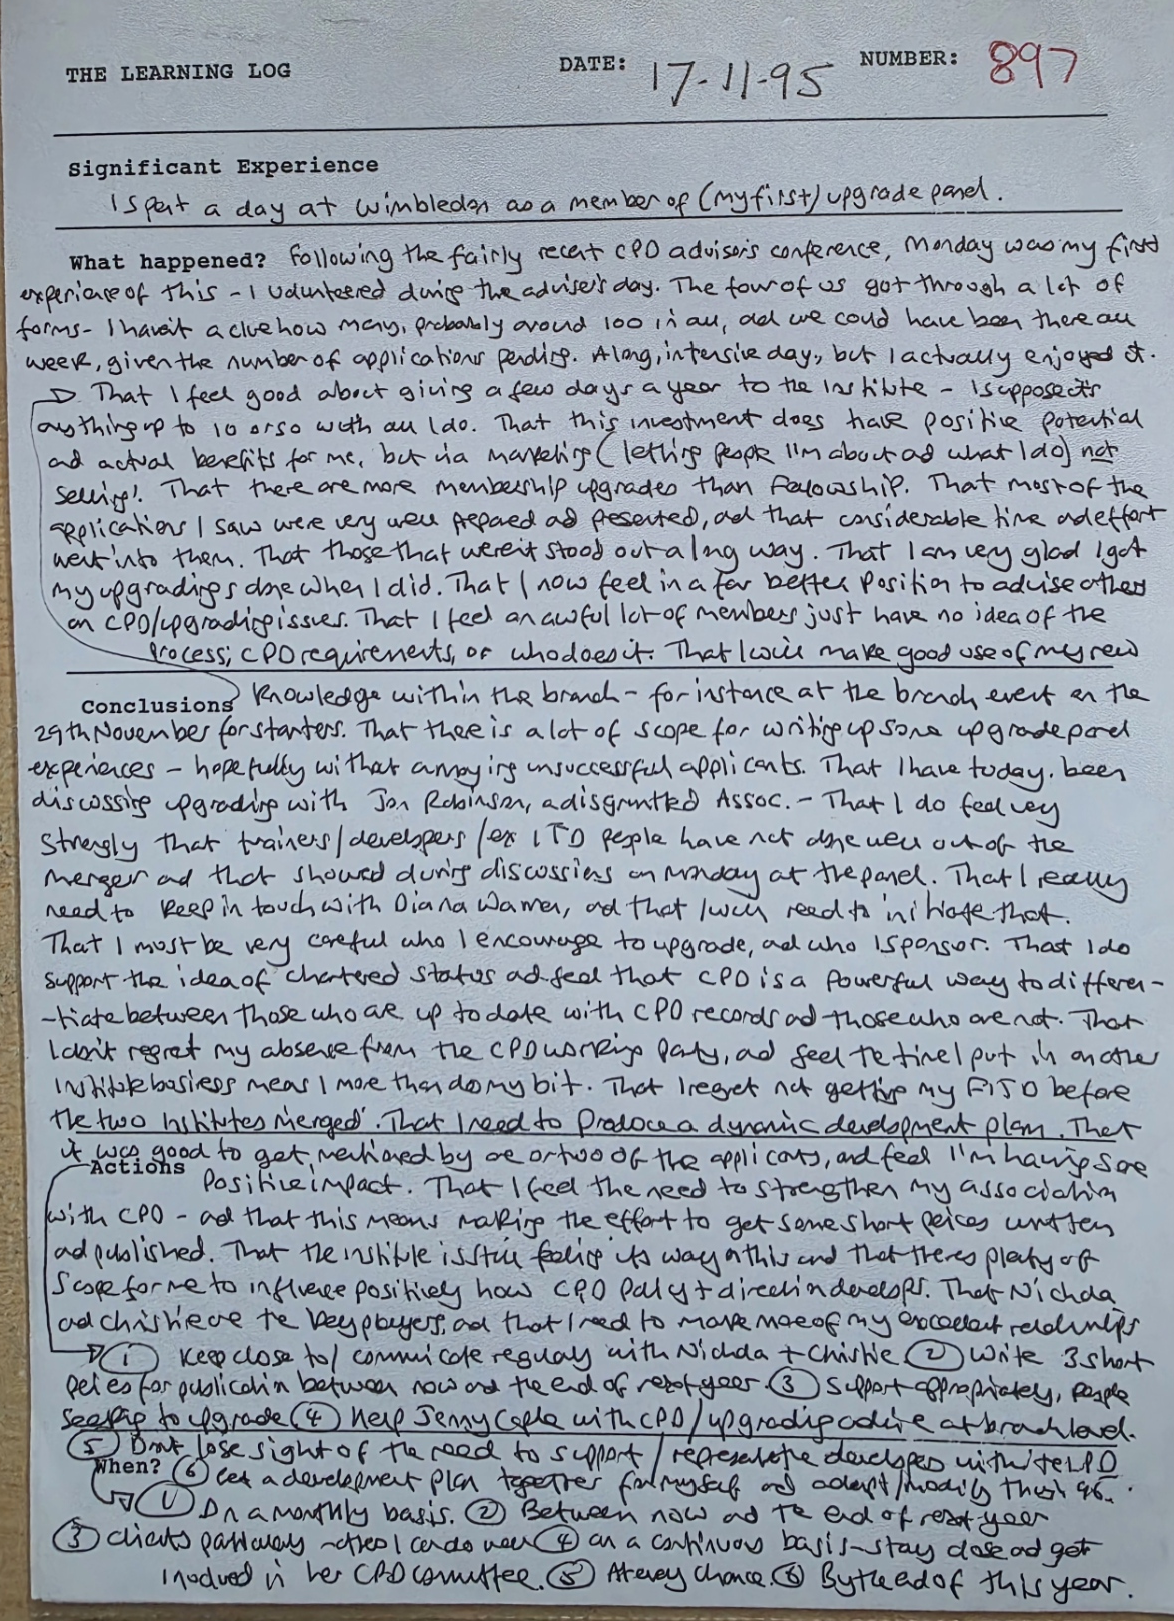 THE LEARNING LOG DATE: 17-11-95 NUMBER: 897
Significant Experience
I spent a day at Wimbledon as a member of (my first) upgrade panel.
What happened? Following the fairly recent CPD advisors conference, Monday was my first
experience of this - I volunteered during the adviser's day. The four of us got through a lot of
forms - I haven't a clue how many, probably around 100 in all, and we could have been there all
week, given the number of applications pending. A long, intensive day, but I actually enjoyed it.
That I feel good about giving a few days a year to the Institute - I suppose it's
anything up to 10 or so with all I do. That this investment does have positive potential
and actual benefits for me, but via marketing (letting people I'm about and what I do) not
selling! That there are more membership upgrades than Fellowship. That most of the
applications I saw were very well prepared and presented, and that considerable time and effort
went into them. That those that weren't stood out a long way. That I am very glad I got
my upgradings done when I did. That I now feel in a far better position to advise others
on CPD/upgrading issues. That I feel an awful lot of members just have no idea of the
process; CPD requirements, or who does it. That I will make good use of my new
Conclusions knowledge within the branch - for instance at the branch event on the
29th November for starters. That there is a lot of scope for writing up some upgrade panel
experiences - hopefully without annoying unsuccessful applicants. That I have today been
discussing upgrading with Jon Robinson, a disgruntled Assoc. - That I do feel very
strongly that trainers/developers/ex ITD people have not done well out of the
merger and that showed during discussions on Monday at the panel. That I really
need to keep in touch with Diana Warner, and that I will need to initiate that.
That I must be very careful who I encourage to upgrade, and who I sponsor. That I do
support the idea of chartered status and feel that CPD is a powerful way to differen-
-tiate between those who are up to date with CPD records and those who are not. That
I don't regret my absence from the CPD working party, and feel the time I put in on other
Institute business means I more than do my bit. That I regret not getting my FITD before
the two Institutes merged. That I need to produce a dynamic development plan. That
it was good to get mentioned by one or two of the applicants, and feel I'm having some
Actions positive impact. That I feel the need to strengthen my association
with CPD - and that this means making the effort to get some short peices written
and published. That the institute is still feeling its way on this and that theres plenty of
scope for me to influence positively how CPD policy + direction develops. That Nichda
and Christie are the key players, and that I need to make more of my excellent relationships
① Keep close to/communicate regularly with Nichda + Christie ② Write 3 short
peices for publication between now and the end of next year. ③ Support appropriately, people
seeking to upgrade ④ Help Jenny Caple with CPD/upgrading advice at branch level.
⑤ Don't lose sight of the need to support/represent the developers within the IPD
When? ⑥ Get a development plan together for myself and adapt/modify through 96.
① On a monthly basis. ② Between now and the end of next year
③ Clients particularly - others I can do well ④ on a continuous basis - stay close and get
involved in her CPD committee. ⑤ At every chance. ⑥ By the end of this year.